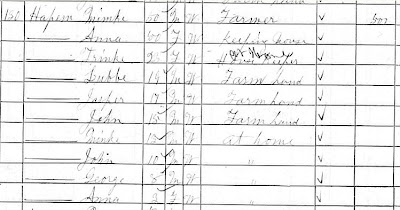 150 Hapem Rinke 50 M W Farmer ✓ 500
—— Anna 50 F W Keeping house ✓
—— Trinke F W at Home ✓
—— Lubbe 19 M W Farm hand ✓
—— Jasper 17 M W Farm hand ✓
—— John 15 M W Farm hand ✓
—— Rinke 12 M W at home ✓
—— John 10 M W " ✓
—— George 8 M W " ✓
—— Anna 2 F W " ✓